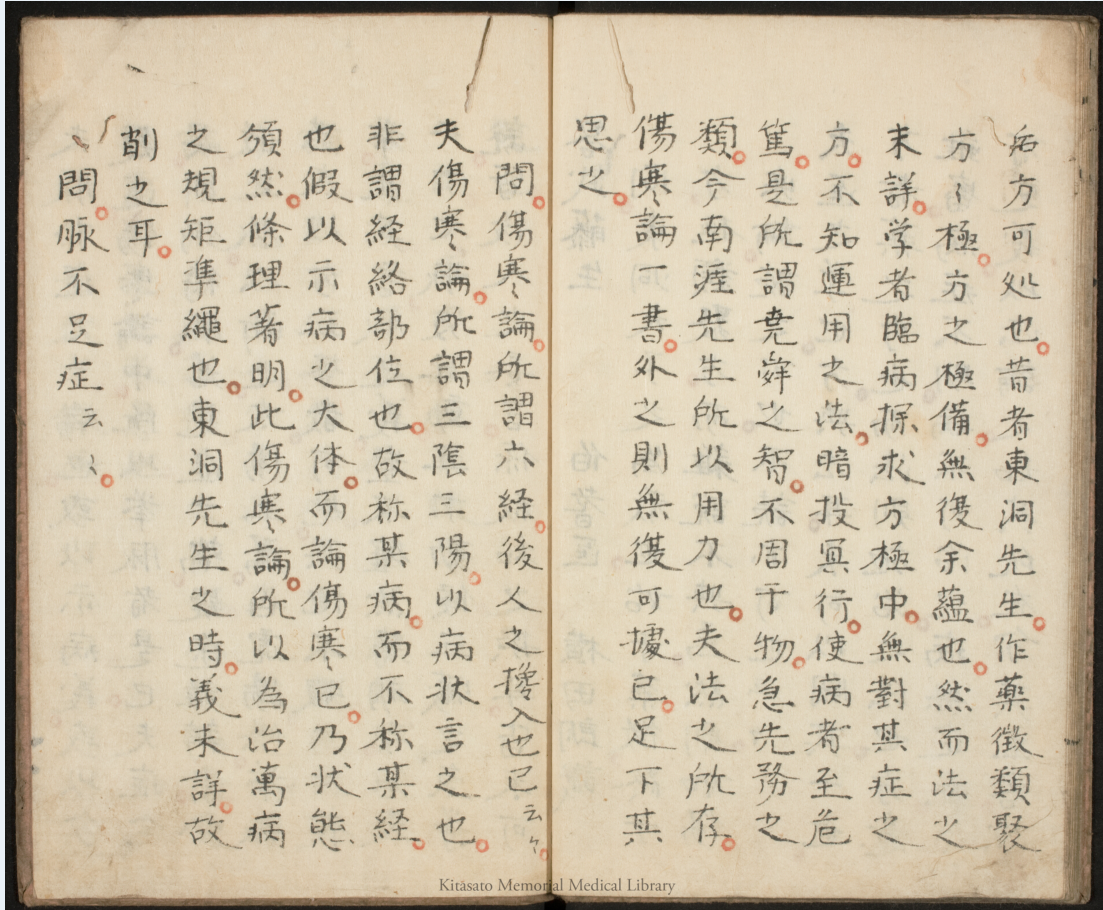 病方可処也昔者東洞先生作薬徴類聚
方〻極方之極備無復余蘊也然而法之
未詳学者臨病探求方極中無対其症之
方不知運用之法暗投冥行使病者至危
篤是所謂尭舜之智不周于物急先務之
類今南涯先生所以用力也夫法之所存
傷寒論一書外之則無復可據已足下其
思之
問傷寒論所謂六経後人之攙入也已云々
夫傷寒論所謂三陰三陽以病状言之也
非謂経絡部位也故称某病而不称某経
也假以示病之大体而論傷寒已乃状態
須然條理著明此傷寒論所以為治萬病
之規矩準繩也東洞先生之時義未詳故
削之耳
問脉不足症云〻
Kitasato Memorial Medical Library